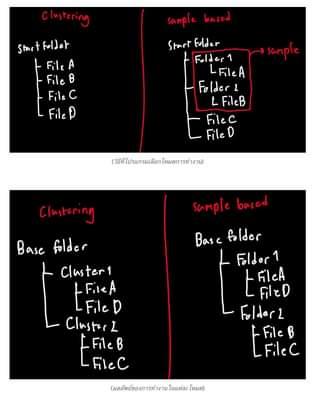 Clustering
Start Folder
File A
File B
File C
File D
sample based
Start Folder
Folder 1
File A
Folder 2
File B
File C
File D
sample
(วิธีที่โปรแกรมเลือกโหมดการทำงาน)
Clustering
Base folder
Cluster 1
File A
File D
Cluster 2
File B
File C
sample based
Base folder
Folder 1
File A
File D
Folder 2
File B
File C
(ผลลัพธ์ของการทำงานในแต่ละโหมด)